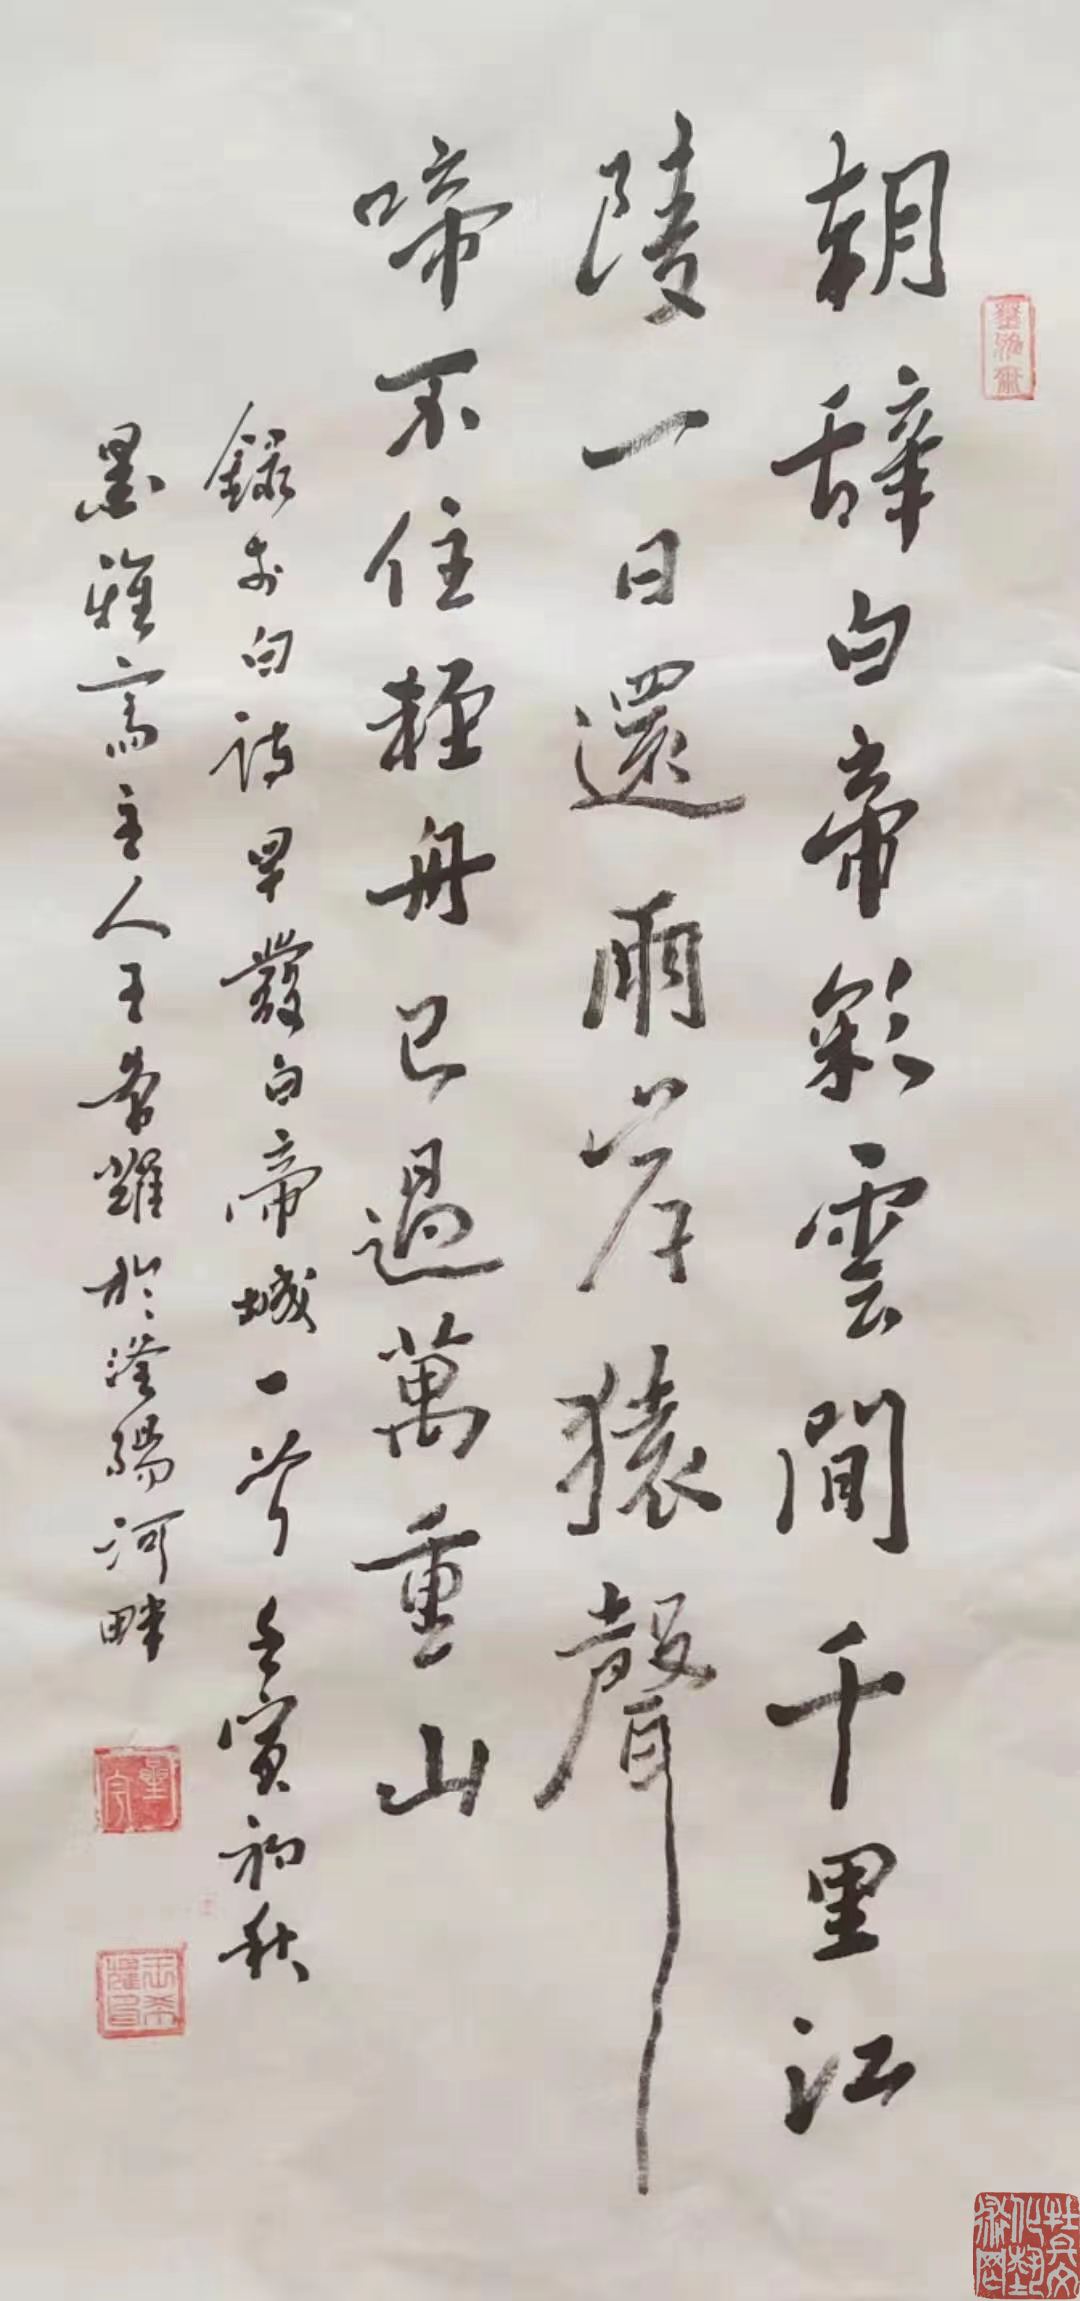 朝辞白帝彩雲間千里江
陵一日還兩岸猿聲
啼不住輕舟已過萬重山
錄李白詩早發白帝城一首壬寅初秋
墨雅齋主人王希耀於滏陽河畔